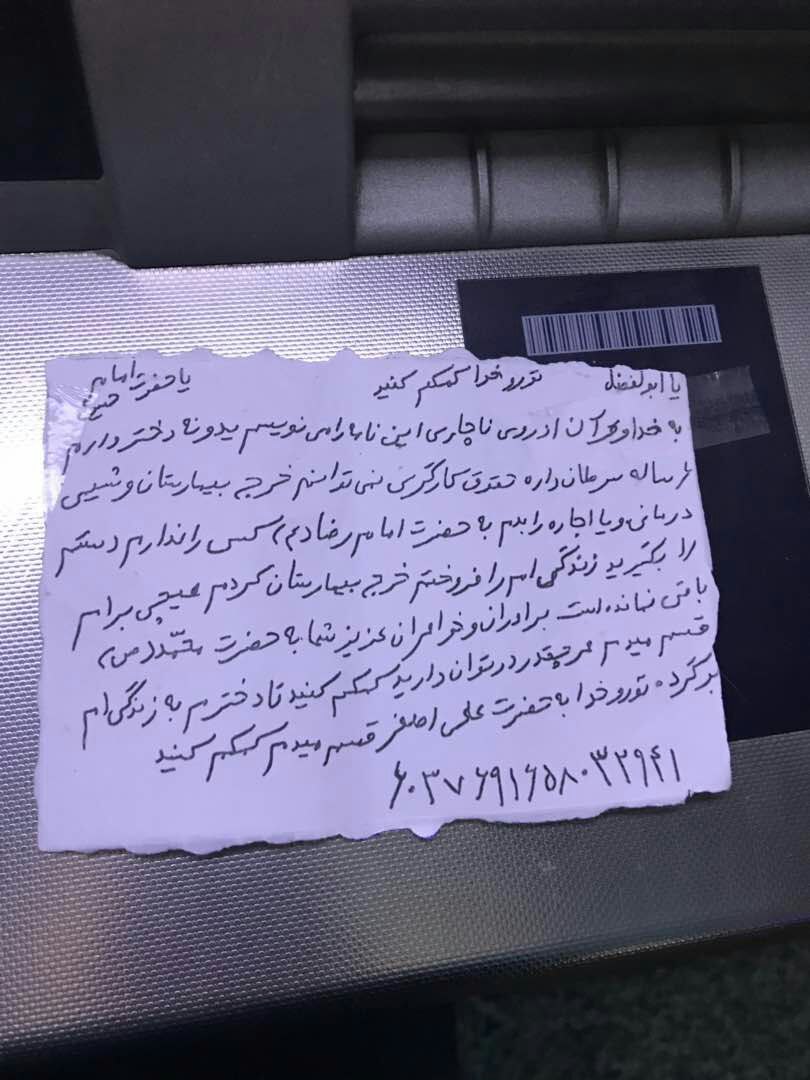 یا ابوالفضل تورو خدا کمکم کنید یا حضرت امام حسین
به خدا و قرآن از روی ناچاری این نامه را می نویسم یدونه دختر دارم
۶ ساله سرطان داره حقوق کارگری نمی توانم خرج بیمارستان و شیمی
درمانی و یا اجاره را بدم به حضرت امام رضا (ع) کسی را ندارم دستم
را بگیرید زندگی ام را فروختم خرج بیمارستان کردم هیچی برام
باقی نمانده است برادران و خواهران عزیز شما به حضرت محمد (ص)
قسم میدم هر چقدر در توان دارید کمکم کنید تا دخترم به زندگی ام
برگرده تورو خدا به حضرت علی اصغر قسم میدم کمکم کنید
۶۰۳۷۶۹۱۶۵۸۰۳۲۹۴۱